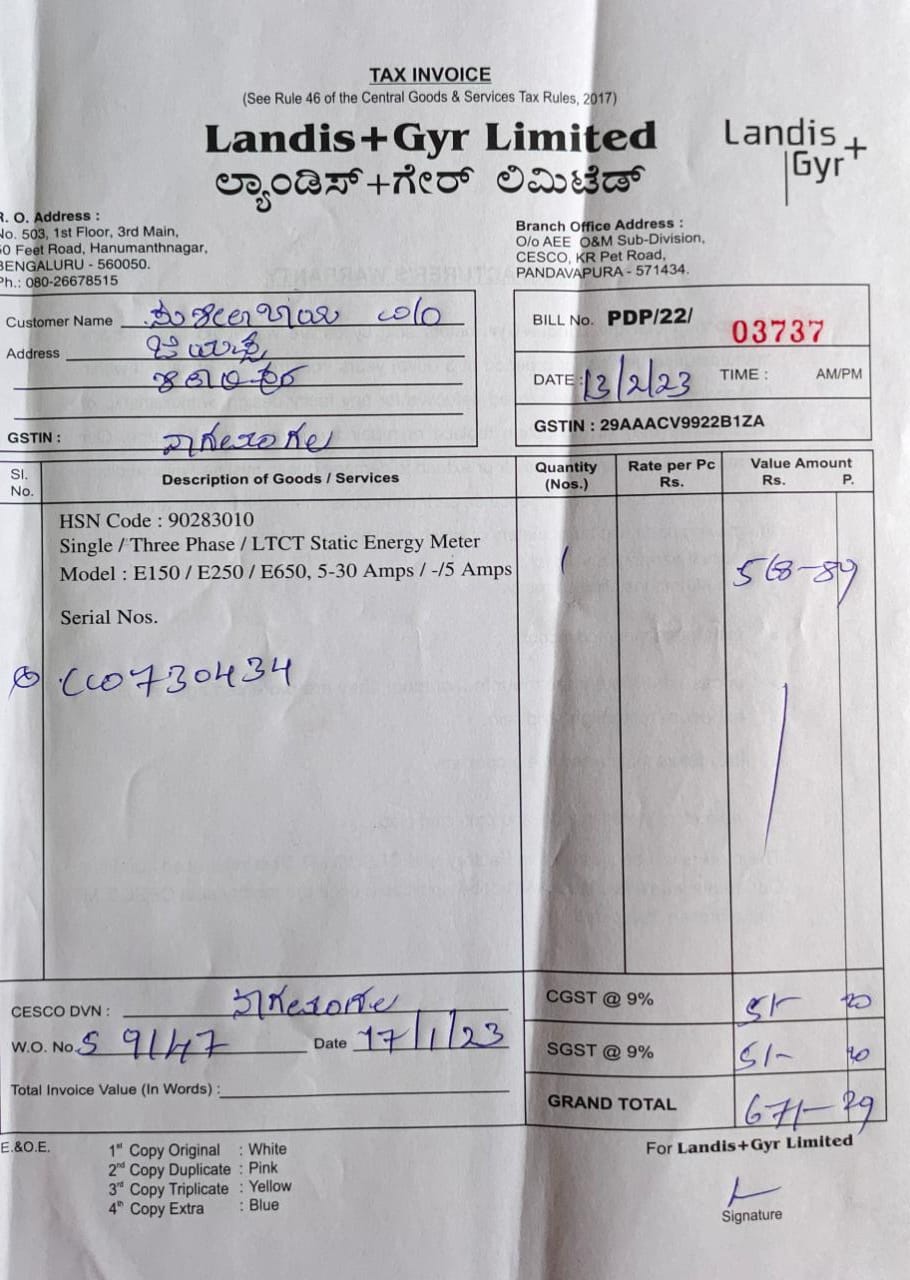 TAX INVOICE
(See Rule 46 of the Central Goods & Services Tax Rules, 2017)
Landis+Gyr Limited
ಲ್ಯಾಂಡಿಸ್+ಗೇರ್ ಲಿಮಿಟೆಡ್
Landis+Gyr
R. O. Address :
No. 503, 1st Floor, 3rd Main,
50 Feet Road, Hanumanthnagar,
BENGALURU - 560050.
Ph.: 080-26678515
Branch Office Address :
O/o AEE O&M Sub-Division,
CESCO, KR Pet Road,
PANDAVAPURA - 571434.
Customer Name
Address
GSTIN :
BILL No. PDP/22/ 03737
DATE : 13/2/23 TIME : AM/PM
GSTIN : 29AAACV9922B1ZA
Sl. No. Description of Goods / Services Quantity (Nos.) Rate per Pc Rs. Value Amount Rs. P.
HSN Code : 90283010
Single / Three Phase / LTCT Static Energy Meter
Model : E150 / E250 / E650, 5-30 Amps / -/5 Amps 1 568-89
Serial Nos.
730434
CESCO DVN :
W.O. No. S 9147 Date 17/1/23
Total Invoice Value (In Words) :
CGST @ 9% 51- 20
SGST @ 9% 51- 20
GRAND TOTAL 671- 29
E.&O.E.
1st Copy Original : White
2nd Copy Duplicate : Pink
3rd Copy Triplicate : Yellow
4th Copy Extra : Blue
For Landis+Gyr Limited
Signature